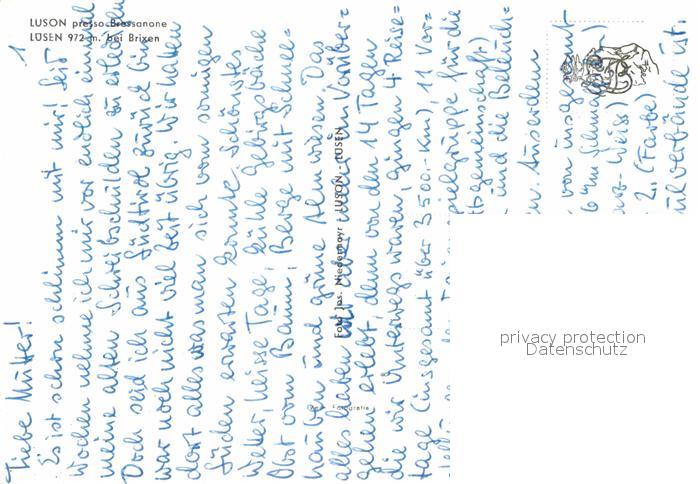 LUSON presso Bressanone
LÜSEN 972 m. bei Brixen
1
Liebe Mutter!
Es ist schon schlimm mit mir! Seit
Wochen nehme ich mir vor endlich einmal
meine alten Schreibschulden zu erledigen
Doch seid ich aus Südtirol zurück bin
war noch nicht viel Zeit übrig. Wir hatten
dort alles was man sich vom sonnigen
Süden erwarten konnte. Schönstes
Wetter, heisse Tage, kühle Gebirgsbäche
Obst vom Baum, Berge mit Schnee=
hauben und grüne Almwiesen. Das
alles haben wir im Vorüber=
gehen erlebt, denn von den 14 Tagen
die wir Unterwegs waren, gingen 4 Reise=
tage (insgesamt über 3500.-Km), 11 Vor=
ielgruppe für die
tsgemeinschaft)
und die Belich=
en. Ausserdem
von insgesamt
6 mm Schmalfilm)
arz-Weiss)
2,, (Farbe)
Foto Jos. Niedermayr LUSON - LÜSEN
Fotografia
privacy protection
Datenschutz